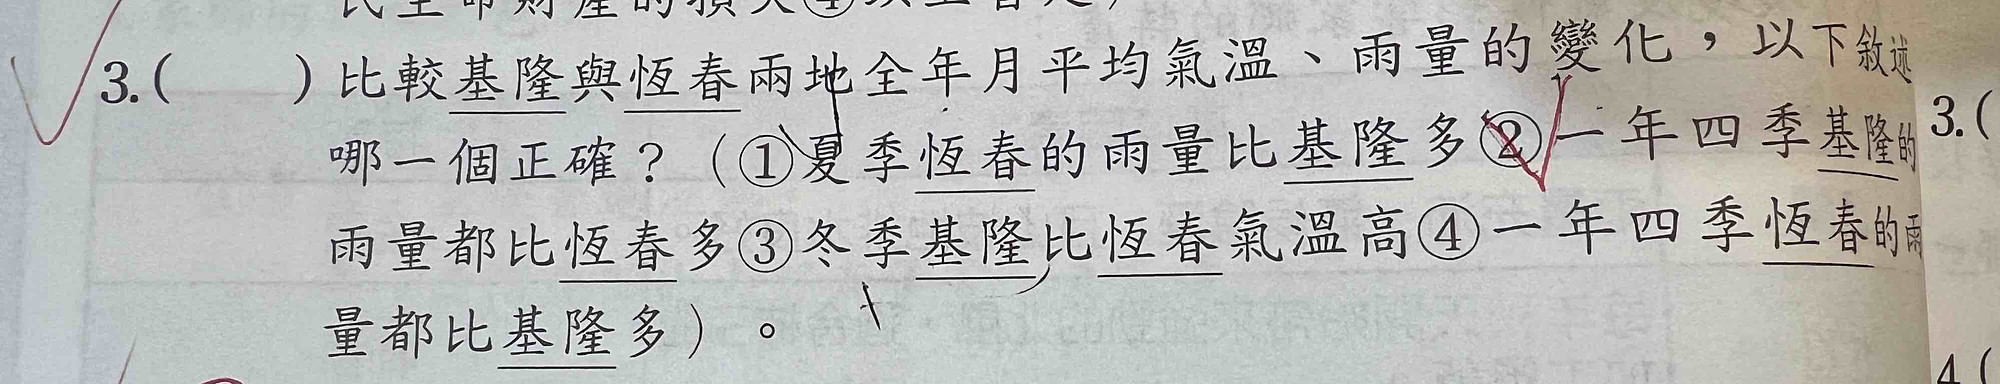 3.(　　)比較基隆與恆春兩地全年月平均氣溫、雨量的變化，以下敘述
哪一個正確？（①夏季恆春的雨量比基隆多②一年四季基隆的
雨量都比恆春多③冬季基隆比恆春氣溫高④一年四季恆春的雨
量都比基隆多）。
3.(
4.(